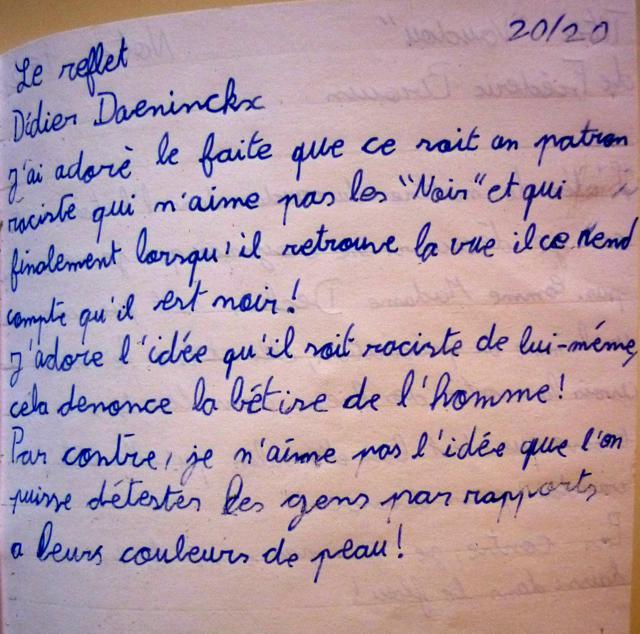 20/20
Le reflet
Didier Daeninckx
J'ai adorè le faite que ce soit un patron
raciste qui n'aime pas les "Noir" et qui
finalement lorsqu'il retrouve la vue il ce rend
compte qu'il est noir!
J'adore l'idée qu'il soit raciste de lui-même,
cela denonce la bétise de l'homme!
Par contre, je n'aime pas l'idée que l'on
puisse détester les gens par rapports
a leurs couleurs de peau!